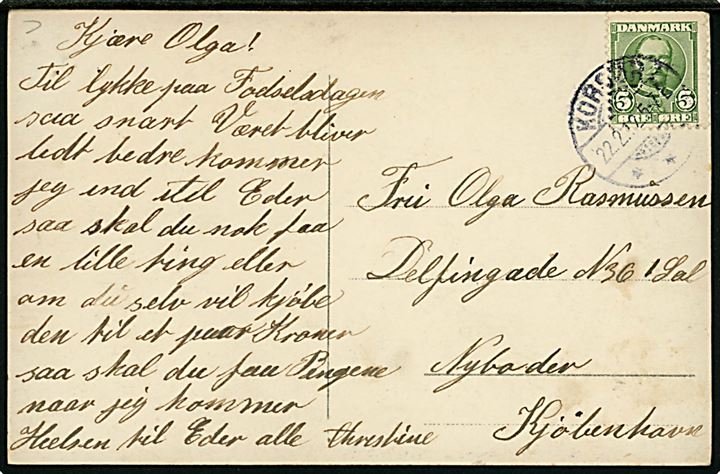 Kjære Olga!
Til lykke paa Fodselsdagen
saa snart Været bliver
lidt bedre kommer
jeg ind til Eder
saa skal du nok faa
en lille ting eller
om du selv vil kjøbe
den til et paar Kroner
saa skal du faa Pengene
naar jeg kommer
Heelsen til Eder alle
DANMARK
5 5
ØRE ØRE
KORSØR
22.2.12
Fru Olga Rasmussen
Delfingade N36 1 Sal
Nyboder
Kjöbenhavn